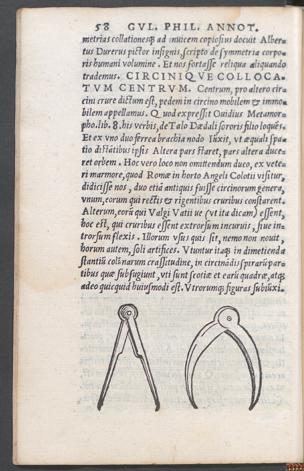 58 GVL. PHIL. ANNOT.
metrias collationesq́; ad inuicem copiosius docuit Alber-
tus Durerus pictor insignis, scripto de symmetria corpo-
ris humani volumine. Et nos fortasse reliqua aliquando
trademus. CIRCINIQVE COLLOCA-
TVM CENTRVM. Centrum, pro altero cir-
cini crure dictum est, pedem in circino mobilem & immo-
bilem appellamus. Quod expressit Ouidius Metamor-
pho. lib. 8. his verbis, de Talo Dædali sororis filio loquēs.
Et ex vno duo ferrea brachia nodo Iūxit, vt æquali spa-
tio distātibus ipsis Altera pars staret, pars altera duce-
ret orbem. Hoc vero loco non omittendum duco, ex vete-
ri marmore, quod Romæ in horto Angeli Colotij visitur,
didicisse nos, duo etiā antiquis fuisse circinorum genera,
vnum, eorum qui rectis & rigentibus cruribus constarent.
Alterum, eorū qui Valgi Vatii ue (vt ita dicam) essent,
hoc est, qui cruribus essent extrorsum incuruis, siue in-
trorsum flexis. Illorum vsus quis sit, nemo non nouit,
horum autem, soli artifices. Vtuntur itaq; in dimetienda
stantiū colūnarum crassitudine, in circinādis spirarū par-
tibus quæ subfugiunt, vti sunt scotiæ et earū quadræ, atq;
adeo quicquid huiusmodi est. Vtrorumq; figuras subiūxi.